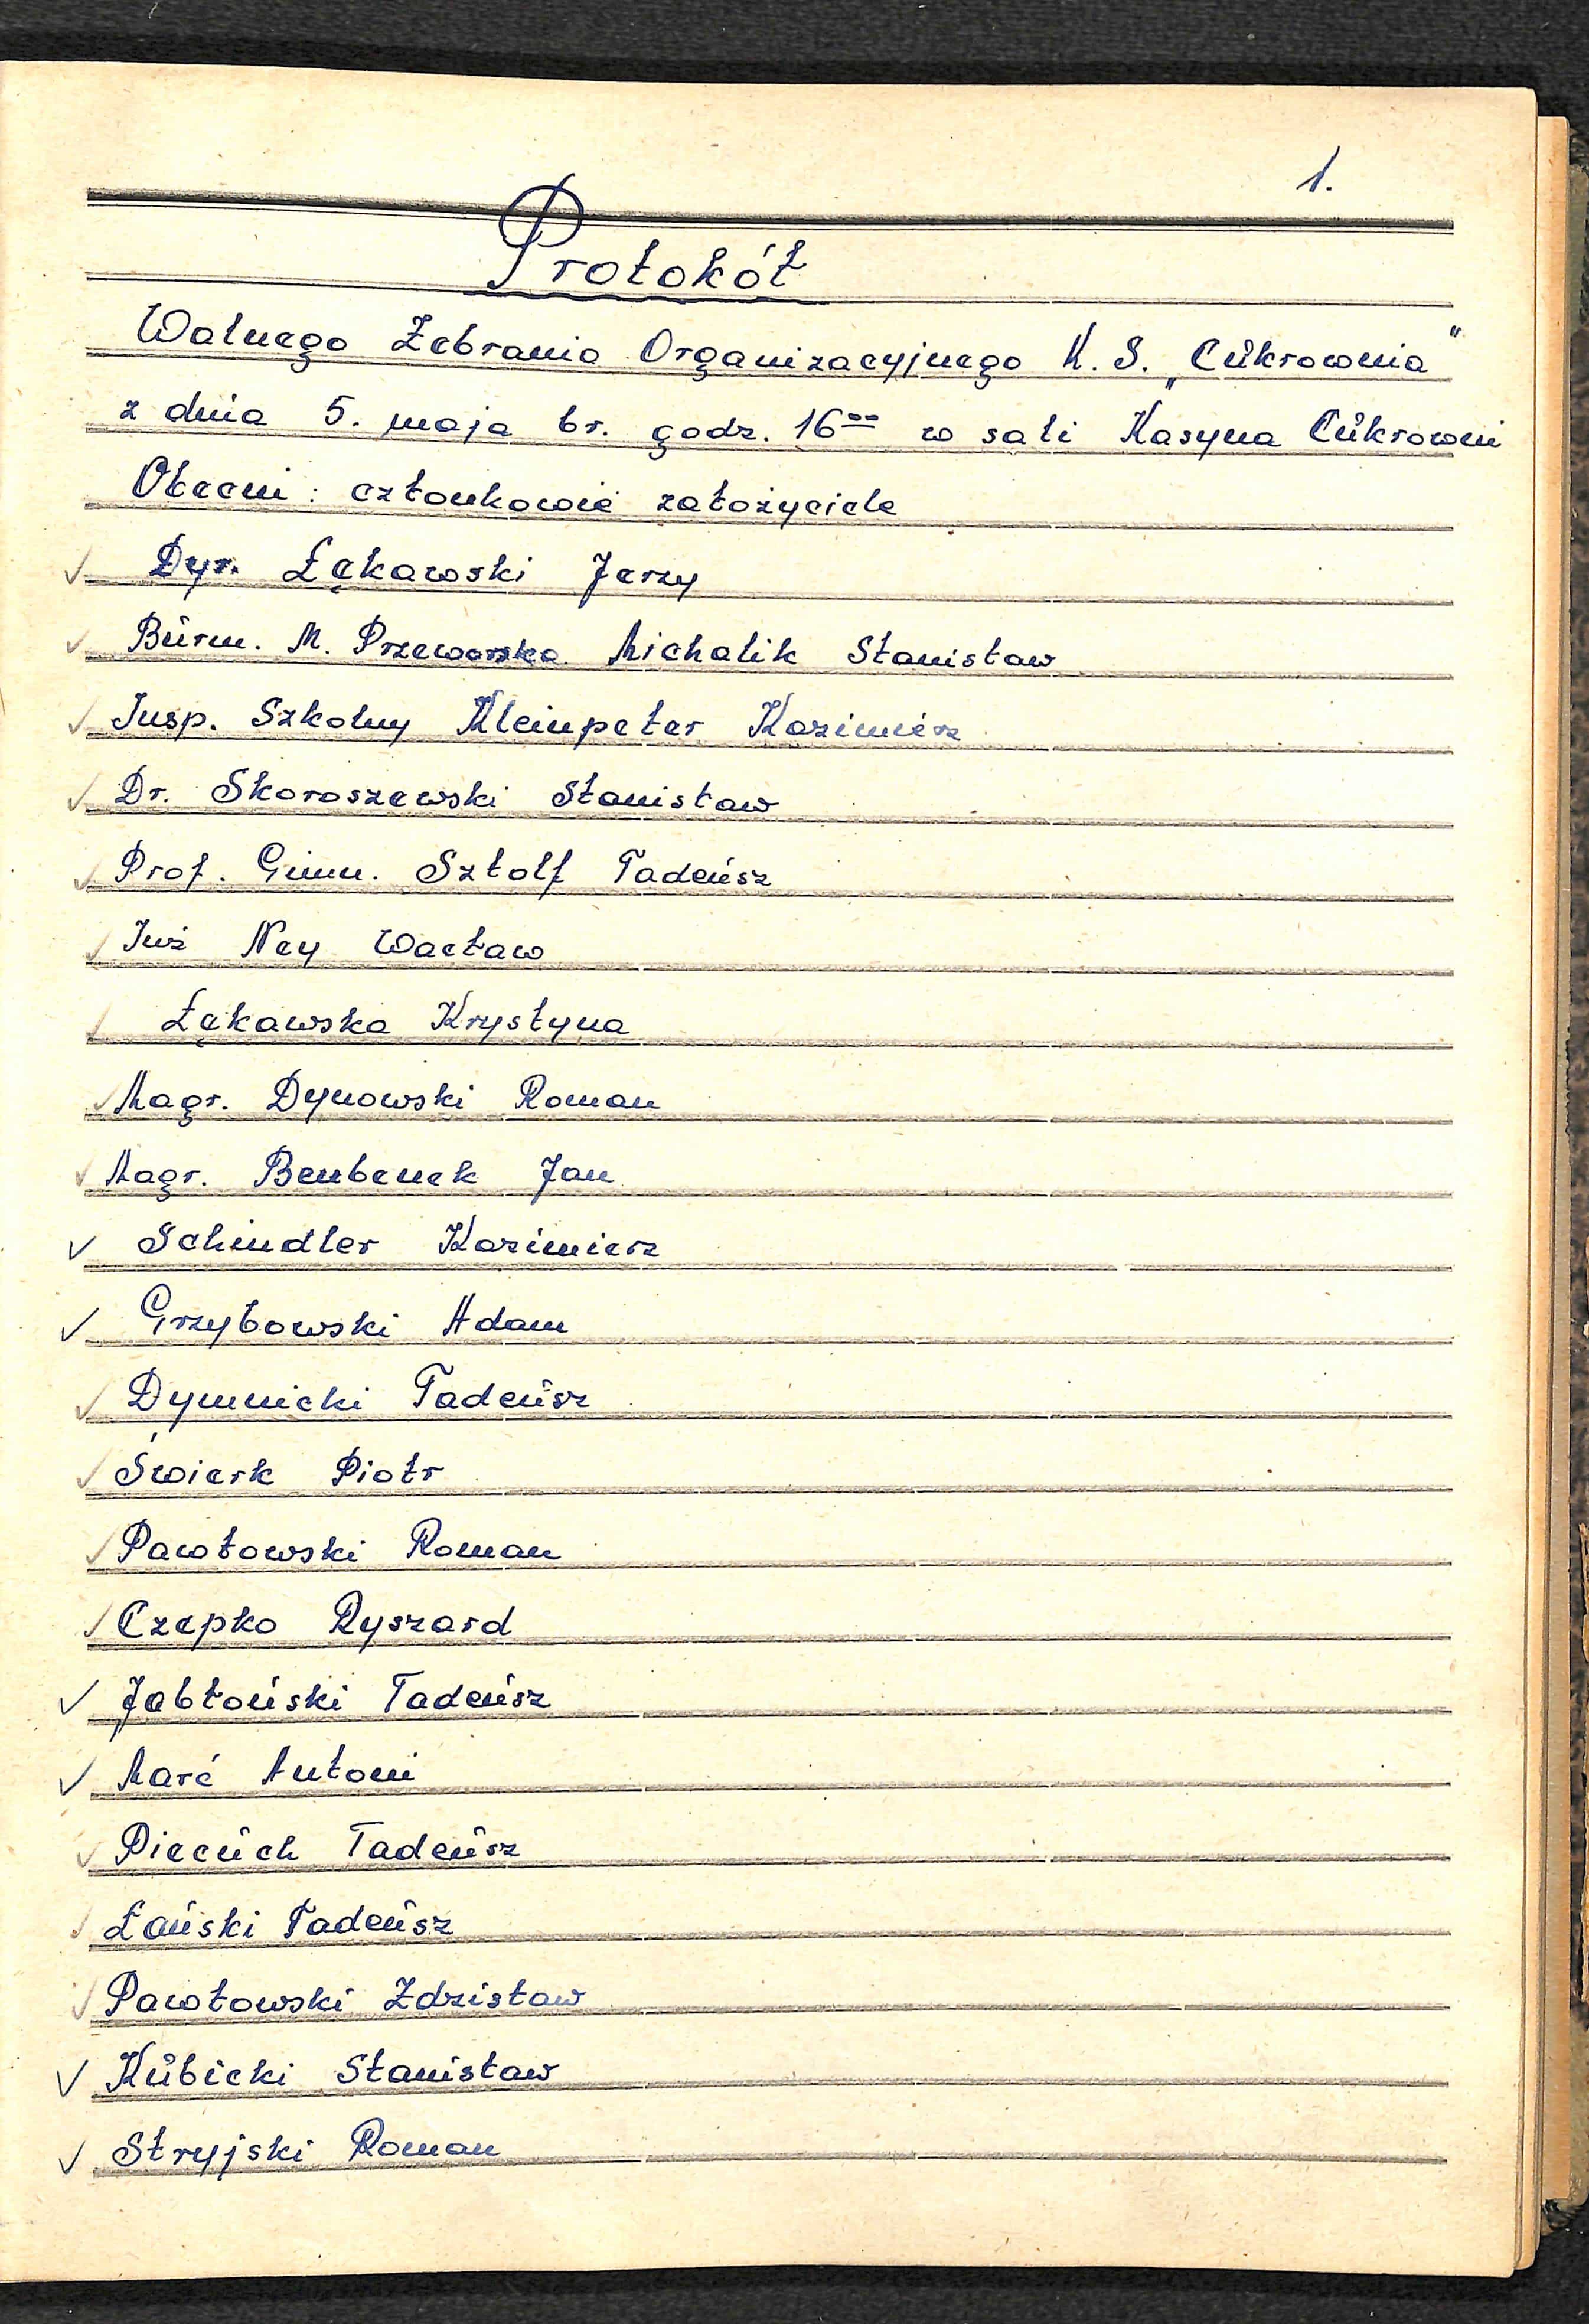 1.
Protokół
Walnego Zebrania Organizacyjnego K. S. „Cukrownia"
z dnia 5. maja br. godz. 16⁰⁰ w sali Kasyna Cukrowni
Obecni: członkowie założyciele
✓ Dyr. Łękawski Jerzy
✓ Burm. M. Przeworska Michalik Stanisław
✓ Insp. Szkolny Kleinpeter Kazimierz
✓ Dr. Skoroszewski Stanisław
✓ Prof. Gimn. Sztolf Tadeusz
✓ Inż Ney Wacław
✓ Łękawska Krystyna
✓ Magr. Dynowski Roman
✓ Magr. Benbenek Jan
✓ Schindler Kazimierz
✓ Grzybowski Adam
✓ Dymnicki Tadeusz
✓ Świerk Piotr
✓ Pawłowski Roman
✓ Czepko Ryszard
✓ Jabłoński Tadeusz
✓ Marć Antoni
✓ Piecuch Tadeusz
✓ Łański Tadeusz
✓ Pawłowski Zdzisław
✓ Kubicki Stanisław
✓ Stryjski Roman